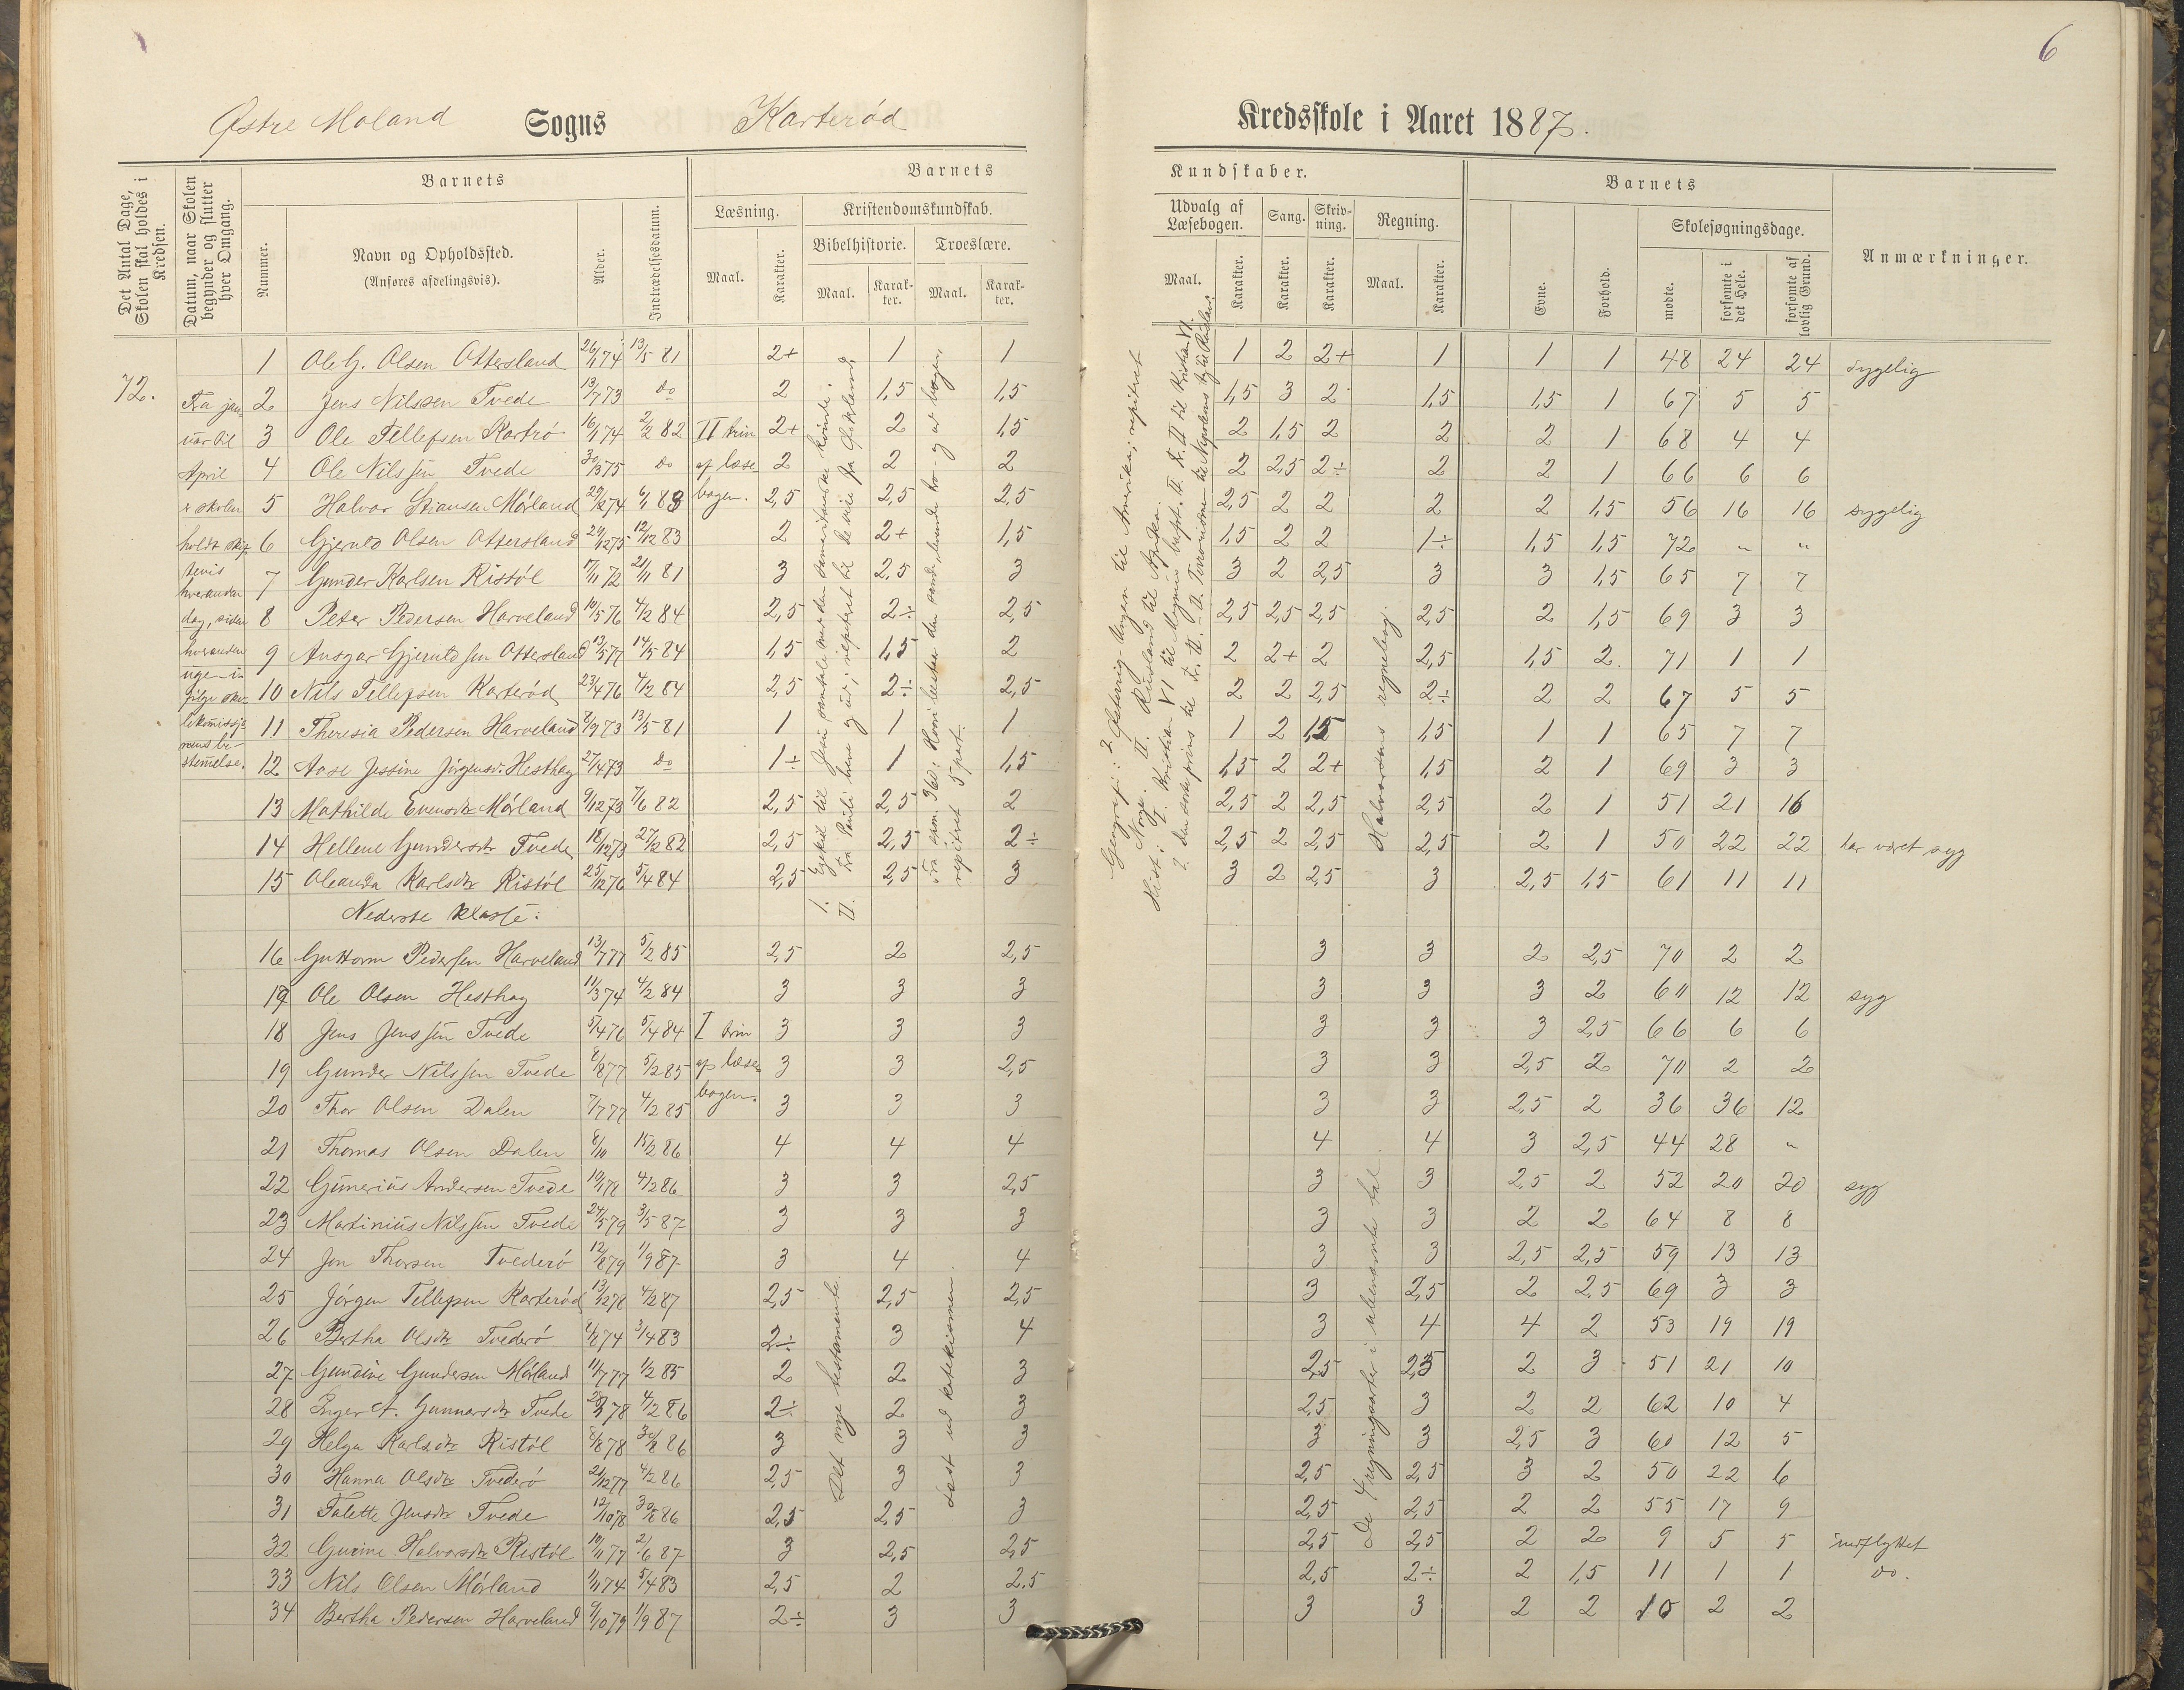 6
Østre Moland Sogns Karterød Kredsskole i Aaret 1887.
Det Antal Dage, Skolen skal holdes i Kredsen.
Datum, naar Skolen begynder og slutter hver Omgang.
Barnets
Nummer.
Navn og Opholdssted.
(Anføres afdelingsvis).
Alder.
Indtrædelsesdatum.
Barnets Kundskaber.
Læsning.
Maal.
Karakter.
Kristendomskundskab.
Bibelhistorie.
Maal.
Karakter.
Troeslære.
Maal.
Karakter.
Udvalg af Læsebogen.
Maal.
Karakter.
Sang.
Karakter.
Skrivning.
Karakter.
Regning.
Maal.
Karakter.
Barnets
Evne.
Forhold.
Skolesøgningsdage.
mødte.
forsømte i det Hele.
forsømte af lovlig Grund.
Anmærkninger.
72.
Fra januar til April er skolen holdt skiftevis hverandendag, siden hveranden uge
II trin af læsebogen.
I trin af læsebogen.
Halvorsens regnebog.
Det nye testamente.
De 4 regningsarter i ubenævnte tal.
1 Ole G. Olsen Ottersland 26/1 74 13/5 81 2+ 1 1 1 2 2+ 1 1 1 48 24 24 sygelig
2 Jens Nilssen Tvede 13/7 73 do 2 1,5 1,5 1,5 3 2 1,5 1,5 1 67 5 5
3 Ole Tellefsen Kartrø 16/1 74 2/2 82 2+ 2 1,5 2 1,5 2 2 2 1 68 4 4
4 Ole Nilssen Tvede 30/3 75 do 2 2 2 2 2,5 2÷ 2 2 1 66 6 6
5 Halvor Stiansen Mørland 29/12 74 6/1 83 2,5 2,5 2,5 2,5 2 2 2 2 1,5 56 16 16 sygelig
6 Gjeruld Olsen Ottersland 29/12 75 12/12 83 2 2+ 1,5 1,5 2 2 1÷ 1,5 1,5 72 " "
7 Gunder Karlsen Ristøl 17/11 72 21/11 81 3 2,5 3 3 2 2,5 3 3 1,5 65 7 7
8 Peter Pedersen Harveland 10/5 76 4/2 84 2,5 2÷ 2,5 2,5 2,5 2,5 2,5 2 1,5 69 3 3
9 Ansgar Gjeruldsen Ottersland 12/5 77 14/5 84 1,5 1,5 2 2 2+ 2 2,5 1,5 2 71 1 1
10 Nils Tellefsen Karterød 23/4 76 4/2 84 2,5 2÷ 2,5 2 2 2,5 2÷ 2 2 67 5 5
11 Theresia Pedersen Harveland 8/9 73 13/5 81 1 1 1 1 2 1,5 1,5 1 1 65 7 7
12 Aase Jessine Jørgensd. Hesthag 27/4 73 do 1÷ 1 1,5 1,5 2 2+ 1,5 2 1 69 3 3
13 Mathilde Evensdtr Mørland 9/12 73 7/6 82 2,5 2,5 2 2,5 2 2,5 2,5 2 1 51 21 16
14 Hellene Gundersdtr Tvede 18/12 73 27/2 82 2,5 2,5 2÷ 2,5 2 2,5 2,5 2 1 50 22 22 har været syg
15 Oleanda Karlsdtr Ristøl 25/12 76 5/4 84 2,5 2,5 3 3 2 2,5 3 2,5 1,5 61 11 11
Nederste klasse:
16 Guttorm Pedersen Harveland 13/7 77 5/2 85 2,5 2 2,5 3 3 2 2,5 70 2 2
17 Ole Olsen Hesthag 11/3 74 4/2 84 3 3 3 3 3 3 2 60 12 12 syg
18 Jens Jenssen Tvede 5/4 76 5/4 84 3 3 3 3 3 3 2,5 66 6 6
19 Gunder Nilssen Tvede 8/8 77 5/2 85 3 3 2,5 3 3 2,5 2 70 2 2
20 Thor Olsen Dalen 7/7 77 4/2 85 3 3 3 3 3 2,5 2 36 36 12
21 Thomas Olsen Dalen 8/10 15/2 86 4 4 4 4 4 3 2,5 44 28 "
22 Gunerius Andersen Tvede 10/1 78 4/2 86 3 3 2,5 3 3 2,5 2 52 20 20 syg
23 Martinius Nilssen Tvede 24/5 79 3/5 87 3 3 3 3 3 2 2 64 8 8
24 Jon Thorsen Tvederø 12/8 79 1/9 87 3 4 4 3 3 2,5 2,5 59 13 13
25 Jørgen Tellefsen Karterød 13/12 78 4/2 87 2,5 2,5 2,5 3 2,5 2 2,5 69 3 3
26 Bertha Olsdtr Tvederø 8/8 74 3/4 83 2÷ 3 4 3 4 4 2 53 19 19
27 Gundine Gundersen Mørland 11/7 77 1/2 85 2 2 3 2,5 2,5 2 3 51 21 10
28 Inger A. Gunnarsdtr Tvede 4/2 86 2÷ 2 3 2,5 3 2 2 62 10 4
29 Helga Karlsdtr Ristøl 8/8 78 30/8 86 3 3 3 3 3 2,5 3 60 12 5
30 Hanna Olsdtr Tvederø 21/12 77 4/2 86 2,5 3 3 2,5 2,5 3 2 50 22 6
31 Talette Jensdtr Tvede 12/10 78 30/8 86 2,5 2,5 3 2,5 2,5 2 2 55 17 9
32 Gurine Halvorsdtr Ristøl 10/11 77 2/6 87 3 2,5 2,5 2,5 2,5 2 2 9 5 5 indflyttet
33 Nils Olsen Mørland 1/1 74 5/4 83 2,5 2 2,5 2,5 2÷ 2 1,5 11 1 1 do.
34 Bertha Pedersen Harveland 9/10 79 1/9 87 2÷ 3 3 3 3 2 2 10 2 2